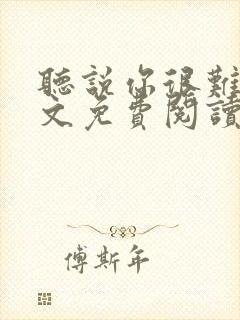 聽說你很難
文免費閱讀
傅斯年